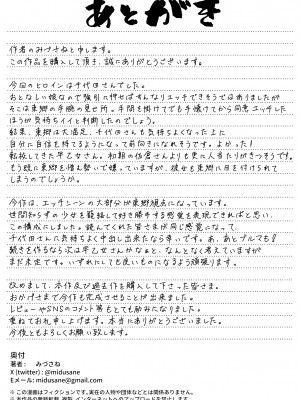 あとがき
作者のみづさねと申します。
この作品を購入して頂き、誠にありがとうございます。
今回のヒロインは千代田さんでした。
おとなしい娘なので強引に押せばすんなりエッチできそうではありましたが
そこは東郷の手腕の見せ所。手間を掛けてでも手懐けてから同意エッチした
ほうが気持ちイイと判断したのでしょう。
結果、東郷は大満足、千代田さんも気持ちよくなった上に
自分に自信を持てるようになって前向きになれそうです。よかった!
転校してきた早乙女さん、初期の佐倉さんよりも更に人当たりがきつそうです。
もう既に東郷を睨み警いで嫌っていますが、彼女も東郷に目を付けられて
しまうのでしょうか。
今作は、エッチシーンの大部分が東郷視点になっています。
世間知らずの少女を籠絡して好き勝手する感覚を表現できればと思い、
この構成にしました。読んでくれた皆さまが同じ感覚になって、
千代田さんに気持ちよく中出し出来たなら幸いです。あ、あとブルマも!
続きを作るなら次は早乙女さんかなぁと、なんとなく考えていますが
まだ未定です。いずれにしても良いものになるよう頑張ります。
改めまして、本作及び過去作を購入して下さった皆さま、
おかげさまで今作も完成させることが出来ました。
レビューやSNSのコメント等もとても励みになりました。
重ねてお礼申し上げます。本当にありがとうございました。
今後ともよろしくお願い致します。
奥付
著者: みづさね
X (twitter) : @midusane
Eメール: midusane@gmail.com
※ この漫画はフィクションです。実在の人物や団体などとは関係ありません。
※ 本作品の無断転載、複製、インターネットへのアップロードを禁止します。